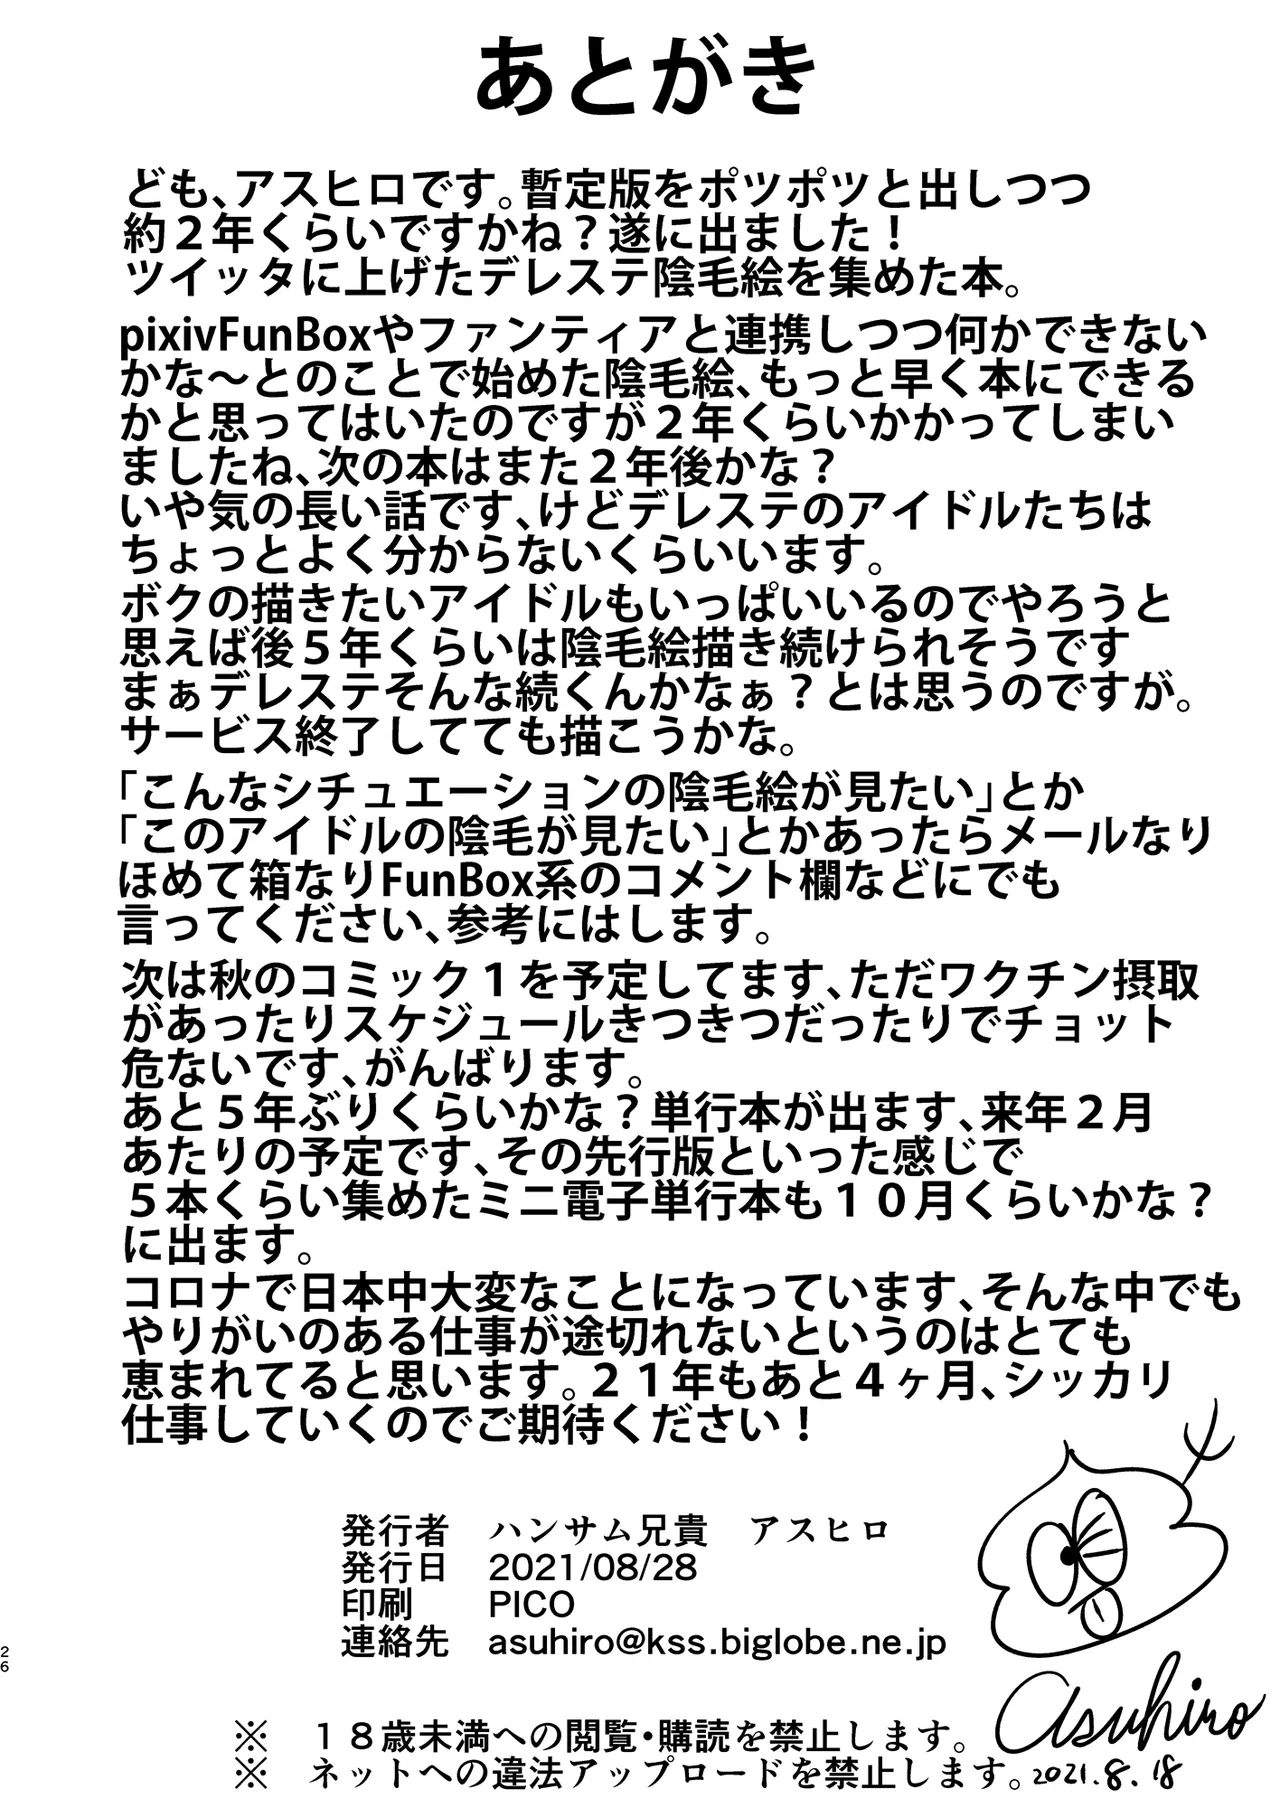 あとがき
ども、アスヒロです。暫定版をポツポツと出しつつ
約２年くらいですかね？遂に出ました！
ツイッタに上げたデレステ陰毛絵を集めた本。
pixivFunBoxやファンティアと連携しつつ何かできない
かな～とのことで始めた陰毛絵、もっと早く本にできる
かと思ってはいたのですが２年くらいかかってしまい
ましたね、次の本はまた２年後かな？
いや気の長い話です、けどデレステのアイドルたちは
ちょっとよく分からないくらいいます。
ボクの描きたいアイドルもいっぱいいるのでやろうと
思えば後５年くらいは陰毛絵描き続けられそうです
まぁデレステそんな続くんかなぁ？とは思うのですが。
サービス終了してても描こうかな。
「こんなシチュエーションの陰毛絵が見たい」とか
「このアイドルの陰毛が見たい」とかあったらメールなり
ほめて箱なりFunBox系のコメント欄などにでも
言ってください、参考にはします。
次は秋のコミック１を予定してます、ただワクチン摂取
があったりスケジュールきつきつだったりでチョット
危ないです、がんばります。
あと５年ぶりくらいかな？単行本が出ます、来年２月
あたりの予定です、その先行版といった感じで
５本くらい集めたミニ電子単行本も１０月くらいかな？
に出ます。
コロナで日本中大変なことになっています、そんな中でも
やりがいのある仕事が途切れないというのはとても
恵まれてると思います。２１年もあと４ヶ月、シッカリ
仕事していくのでご期待ください！
発行者　ハンサム兄貴　アスヒロ
発行日　2021/08/28
印刷　PICO
連絡先　asuhiro@kss.biglobe.ne.jp
26
※　１８歳未満への閲覧・購読を禁止します。
※　ネットへの違法アップロードを禁止します。
asuhiro
2021.8.18